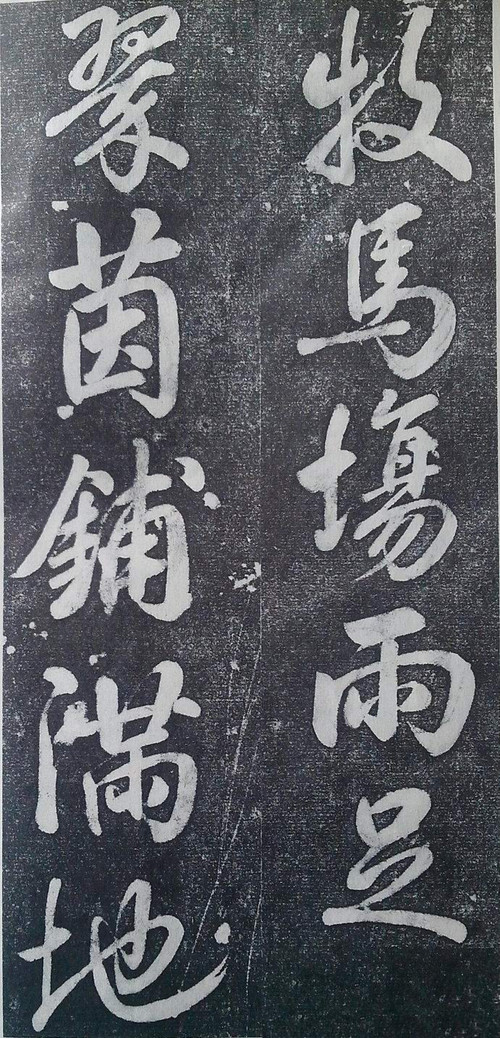 牧馬塲雨足
翠茵鋪滿地